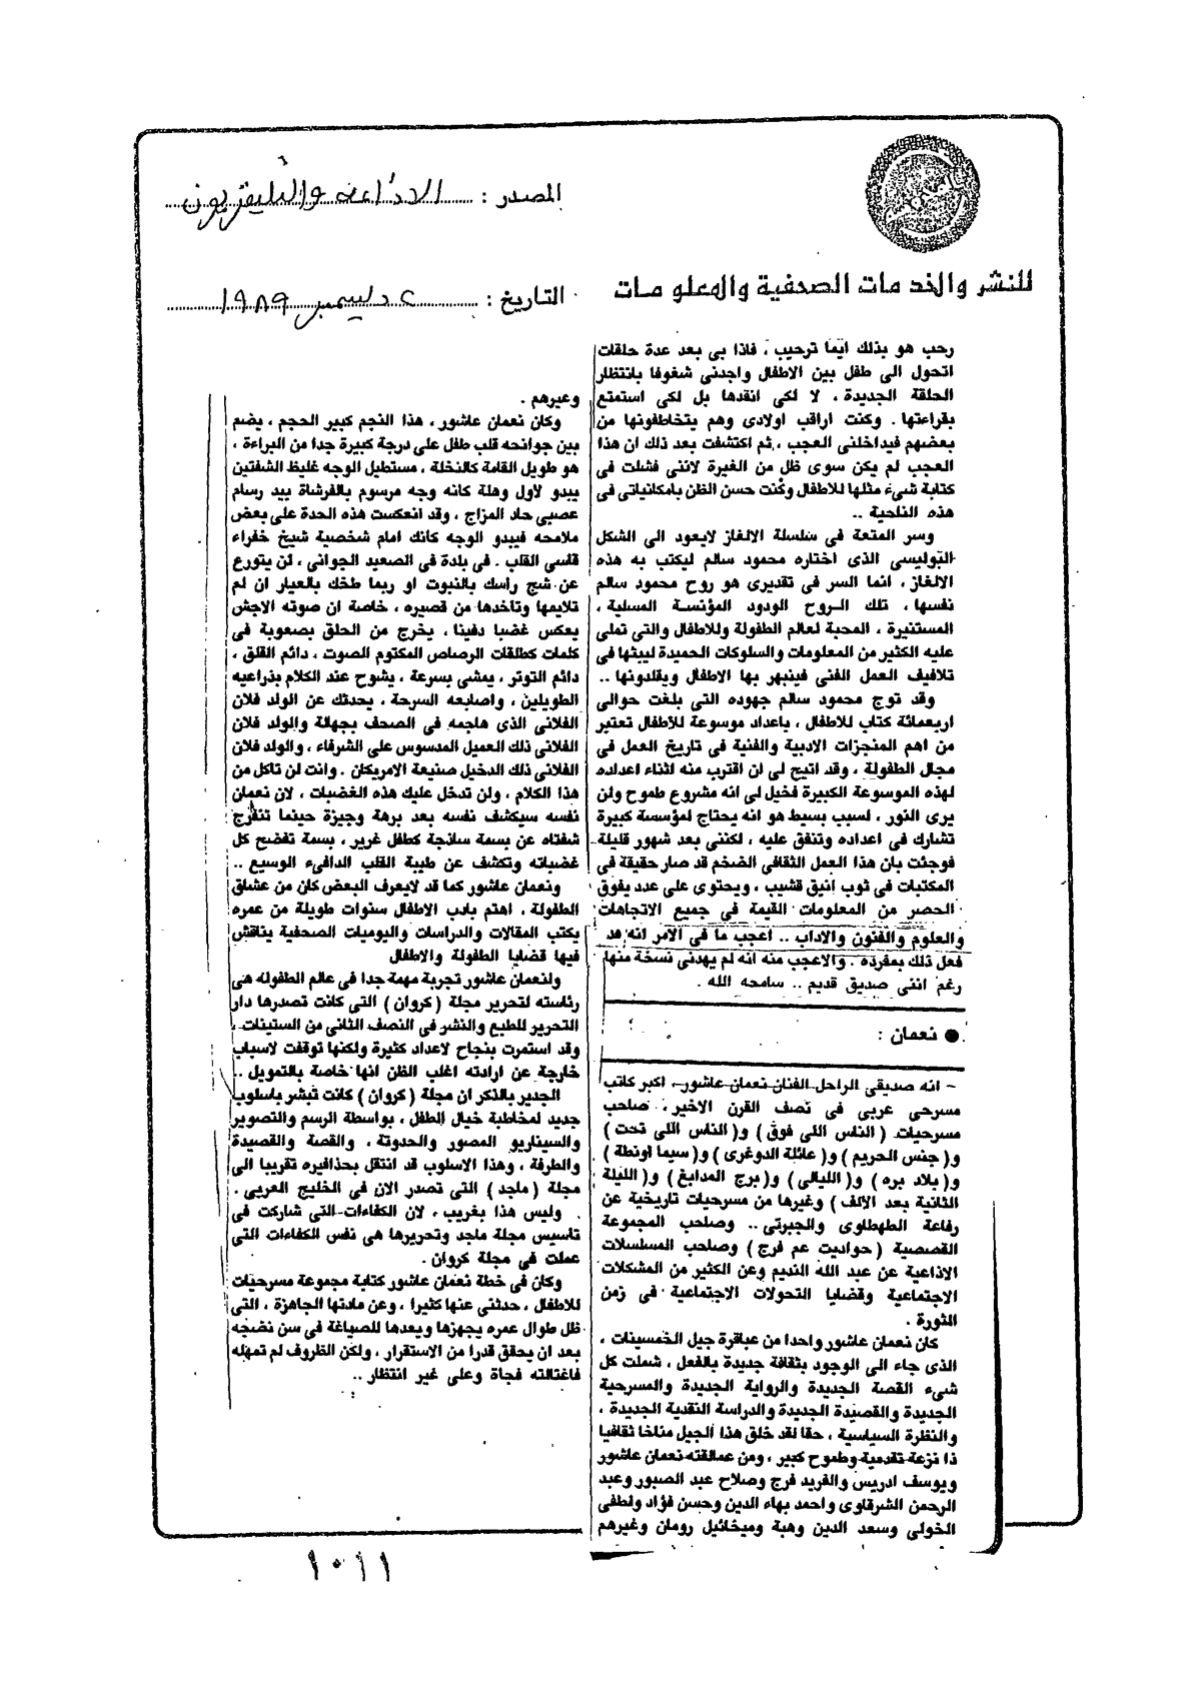 المصدر : الاذاعة والتليفزيون
للنشر والخدمات الصحفية والمعلومات
التاريخ : ٢ ديسمبر ١٩٨٩
رحب هو بذلك ايما ترحيب ، فاذا بى بعد عدة حلقات
اتحول الى طفل بين الاطفال واجدنى شغوفا بانتظار
الحلقة الجديدة ، لا لكى انقدها بل لكى استمتع
بقراءتها . وكنت اراقب اولادى وهم يتخاطفونها من
بعضهم فيداخلنى العجب ، ثم اكتشفت بعد ذلك ان هذا
العجب لم يكن سوى ظل من الغيرة لاننى فشلت فى
كتابة شىء مثلها للاطفال وكنت حسن الظن بامكانياتى فى
هذه الناحية ..
وسر المتعة فى سلسلة الالغاز لايعود الى الشكل
البوليسى الذى اختاره محمود سالم ليكتب به هذه
الالغاز ، انما السر فى تقديرى هو روح محمود سالم
نفسها ، تلك الروح الودود المؤنسة المسلية ،
المستنيرة ، المحبة لعالم الطفولة وللاطفال والتى تملى
عليه الكثير من المعلومات والسلوكات الحميدة ليبثها فى
تلافيف العمل الفنى فينبهر بها الاطفال ويقلدونها ..
وقد توج محمود سالم جهوده التى بلغت حوالى
اربعمائة كتاب للاطفال ، باعداد موسوعة للاطفال تعتبر
من اهم المنجزات الادبية والفنية فى تاريخ العمل فى
مجال الطفولة ، وقد اتيح لى ان اقترب منه اثناء اعداده
لهذه الموسوعة الكبيرة فخيل لى انه مشروع طموح ولن
يرى النور ، لسبب بسيط هو انه يحتاج لمؤسسة كبيرة
تشارك فى اعداده وتنفق عليه ، لكننى بعد شهور قليلة
فوجئت بان هذا العمل الثقافى الضخم قد صار حقيقة فى
المكتبات فى ثوب انيق قشيب ، ويحتوى على عدد يفوق
الحصر من المعلومات القيمة فى جميع الاتجاهات
والعلوم والفنون والاداب .. اعجب ما فى الامر انه قد
فعل ذلك بمفرده . والاعجب منه انه لم يهدنى نسخة منها
رغم اننى صديق قديم .. سامحه الله .
● نعمان :
– انه صديقى الراحل الفنان نعمان عاشور ، اكبر كاتب
مسرحى عربى فى نصف القرن الاخير ، صاحب
مسرحيات ( الناس اللى فوق ) و( الناس اللى تحت )
و( جنس الحريم ) و( عائلة الدوغرى ) و( سيما اونطة )
و( بلاد بره ) و( الليالى ) و( برج المدابغ ) و( الليلة
الثانية بعد الالف ) وغيرها من مسرحيات تاريخية عن
رفاعة الطهطاوى والجبرتى .. وصاحب المجموعة
القصصية ( حواديت عم فرج ) وصاحب المسلسلات
الاذاعية عن عبد الله النديم وعن الكثير من المشكلات
الاجتماعية وقضايا التحولات الاجتماعية فى زمن
الثورة .
كان نعمان عاشور واحدا من عباقرة جيل الخمسينات ،
الذى جاء الى الوجود بثقافة جديدة بالفعل ، شملت كل
شىء القصة الجديدة والرواية الجديدة والمسرحية
الجديدة والقصيدة الجديدة والدراسة النقدية الجديدة ،
والنظرة السياسية ، حقا لقد خلق هذا الجيل مناخا ثقافيا
ذا نزعة تقدمية وطموح كبير ، ومن عمالقته نعمان عاشور
ويوسف ادريس والفريد فرج وصلاح عبد الصبور وعبد
الرحمن الشرقاوى واحمد بهاء الدين وحسن فؤاد ولطفى
الخولى وسعد الدين وهبة وميخائيل رومان وغيرهم
وغيرهم .
وكان نعمان عاشور ، هذا النجم كبير الحجم ، يضم
بين جوانحه قلب طفل على درجة كبيرة جدا من البراءة ،
هو طويل القامة كالنخلة ، مستطيل الوجه غليظ الشفتين
يبدو لاول وهلة كانه وجه مرسوم بالفرشاة بيد رسام
عصبى حاد المزاج ، وقد انعكست هذه الحدة على بعض
ملامحه فيبدو الوجه كانك امام شخصية شيخ خفراء
قاسى القلب . فى بلدة فى الصعيد الجوانى ، لن يتورع
عن شج راسك بالنبوت او ربما طخك بالعيار ان لم
تلايمها وتاخدها من قصيره ، خاصة ان صوته الاجش
يعكس غضبا دفينا ، يخرج من الحلق بصعوبة فى
كلمات كطلقات الرصاص المكتوم الصوت ، دائم القلق ،
دائم التوتر ، يمشى بسرعة ، يشوح عند الكلام بذراعيه
الطويلين ، واصابعه السرحة ، يحدثك عن الولد فلان
الفلانى الذى هاجمه فى الصحف بجهالة والولد فلان
الفلانى ذلك العميل المدسوس على الشرفاء ، والولد فلان
الفلانى ذلك الدخيل صنيعة الامريكان . وانت لن تاكل من
هذا الكلام ، ولن تدخل عليك هذه الغضبات ، لان نعمان
نفسه سيكشف نفسه بعد برهة وجيزة حينما تنفرج
شفتاه عن بسمة ساذجة كطفل غرير ، بسمة تفضح كل
غضباته وتكشف عن طيبة القلب الدافىء الوسيع ..
ونعمان عاشور كما قد لايعرف البعض كان من عشاق
الطفولة ، اهتم بادب الاطفال سنوات طويلة من عمره
يكتب المقالات والدراسات واليوميات الصحفية يناقش
فيها قضايا الطفولة والاطفال
ولنعمان عاشور تجربة مهمة جدا فى عالم الطفوله هى
رئاسته لتحرير مجلة ( كروان ) التى كانت تصدرها دار
التحرير للطبع والنشر فى النصف الثانى من الستينات ،
وقد استمرت بنجاح لاعداد كثيرة ولكنها توقفت لاسباب
خارجة عن ارادته اغلب الظن انها خاصة بالتمويل ..
الجدير بالذكر ان مجلة ( كروان ) كانت تبشر باسلوب
جديد لمخاطبة خيال الطفل ، بواسطة الرسم والتصوير
والسيناريو المصور والحدوتة ، والقصة والقصيدة
والطرفة ، وهذا الاسلوب قد انتقل بحذافيره تقريبا الى
مجلة ( ماجد ) التى تصدر الان فى الخليج العربى .
وليس هذا بغريب ، لان الكفاءات التى شاركت فى
تأسيس مجلة ماجد وتحريرها هى نفس الكفاءات التى
عملت فى مجلة كروان .
وكان فى خطة نعمان عاشور كتابة مجموعة مسرحيات
للاطفال ، حدثنى عنها كثيرا ، وعن مادتها الجاهزة ، التى
ظل طوال عمره يجهزها ويعدها للصياغة فى سن نضجه
بعد ان يحقق قدرا من الاستقرار ، ولكن الظروف لم تمهله
فاغتالته فجاة وعلى غير انتظار ..
١٠١١